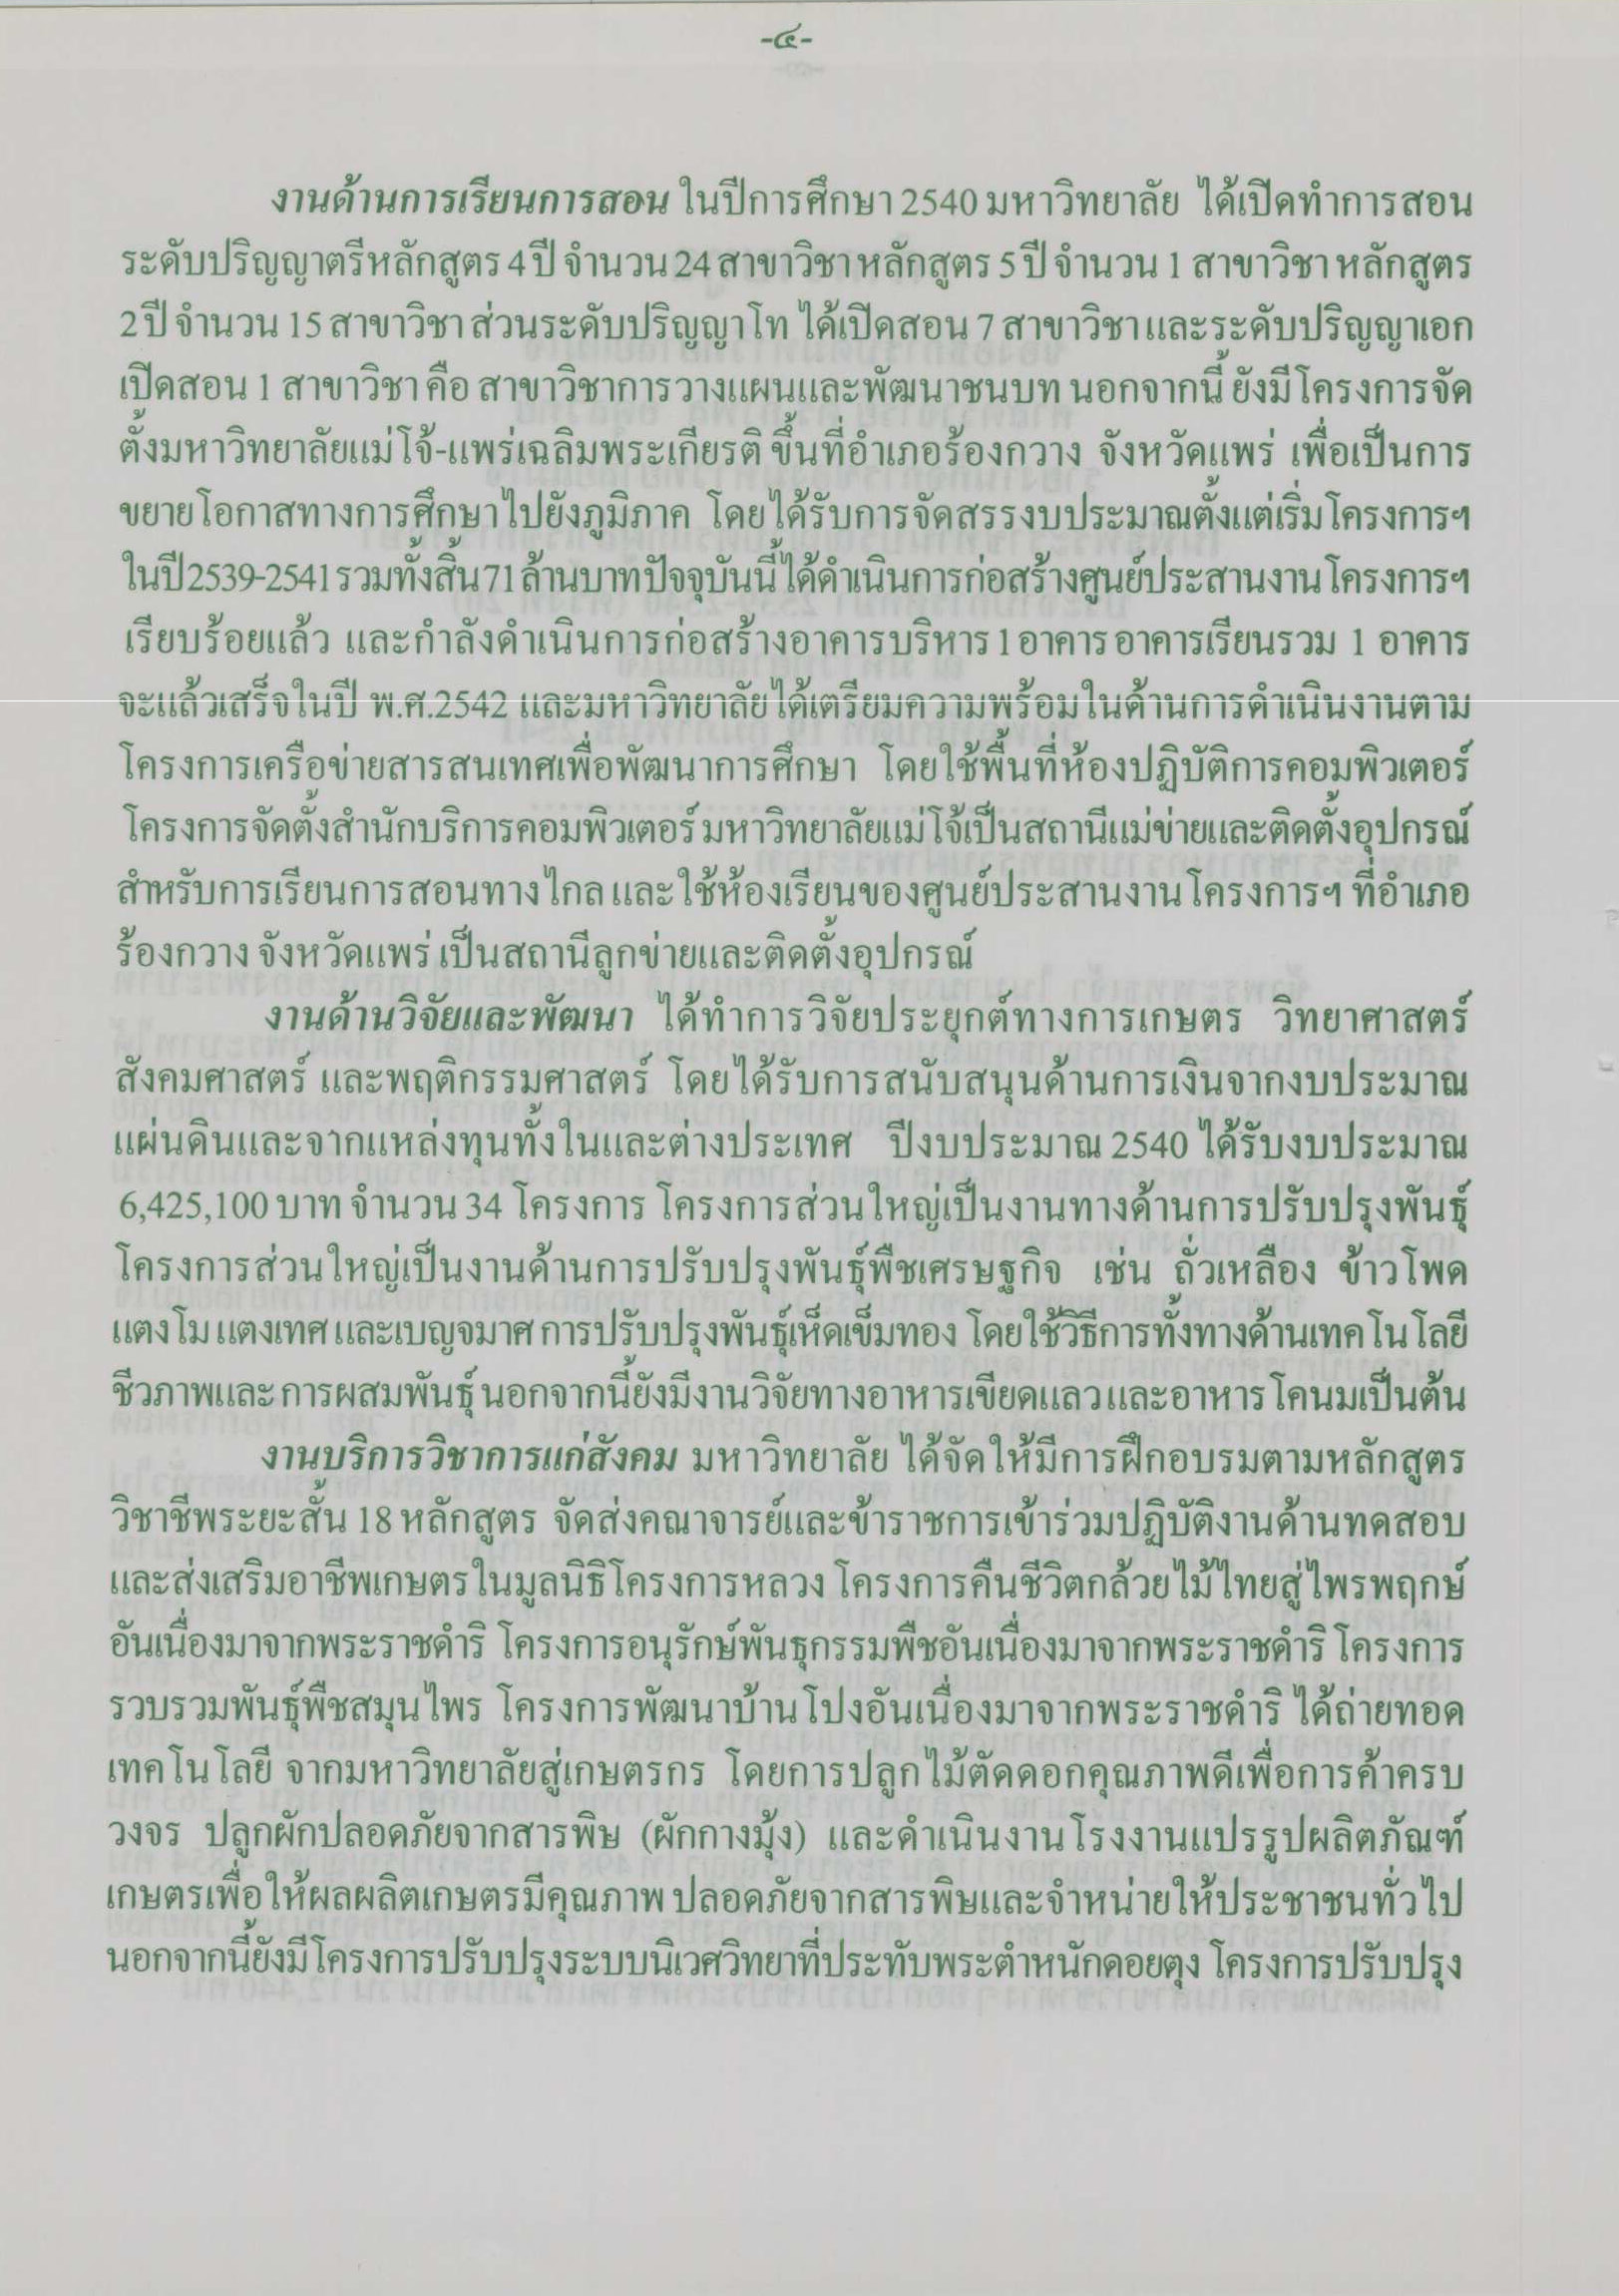 -๔-
งานด้านการเรียนการสอน ในปีการศึกษา 2540 มหาวิทยาลัย ได้เปิดทำการสอน
ระดับปริญญาตรีหลักสูตร 4 ปี จำนวน 24 สาขาวิชา หลักสูตร 5 ปี จำนวน 1 สาขาวิชา หลักสูตร
2 ปี จำนวน 15 สาขาวิชา ส่วนระดับปริญญาโท ได้เปิดสอน 7 สาขาวิชา และระดับปริญญาเอก
เปิดสอน 1 สาขาวิชา คือ สาขาวิชาการวางแผนและพัฒนาชนบท นอกจากนี้ ยังมีโครงการจัด
ตั้งมหาวิทยาลัยแม่โจ้-แพร่เฉลิมพระเกียรติ ขึ้นที่อำเภอร้องกวาง จังหวัดแพร่ เพื่อเป็นการ
ขยายโอกาสทางการศึกษาไปยังภูมิภาค โดยได้รับการจัดสรรงบประมาณตั้งแต่เริ่มโครงการฯ
ในปี 2539-2541 รวมทั้งสิ้น 71 ล้านบาท ปัจจุบันนี้ ได้ดำเนินการก่อสร้างศูนย์ประสานงานโครงการฯ
เรียบร้อยแล้ว และกำลังดำเนินการก่อสร้างอาคารบริหาร 1 อาคาร อาคารเรียนรวม 1 อาคาร
จะแล้วเสร็จในปี พ.ศ.2542 และมหาวิทยาลัยได้เตรียมความพร้อมในด้านการดำเนินงานตาม
โครงการเครือข่ายสารสนเทศเพื่อพัฒนาการศึกษา โดยใช้พื้นที่ห้องปฏิบัติการคอมพิวเตอร์
โครงการจัดตั้งสำนักบริการคอมพิวเตอร์ มหาวิทยาลัยแม่โจ้เป็นสถานีแม่ข่ายและติดตั้งอุปกรณ์
สำหรับการเรียนการสอนทางไกล และใช้ห้องเรียนของศูนย์ประสานงานโครงการฯ ที่อำเภอ
ร้องกวาง จังหวัดแพร่ เป็นสถานีลูกข่ายและติดตั้งอุปกรณ์
งานด้านวิจัยและพัฒนา ได้ทำการวิจัยประยุกต์ทางการเกษตร วิทยาศาสตร์
สังคมศาสตร์ และพฤติกรรมศาสตร์ โดยได้รับการสนับสนุนด้านการเงินจากงบประมาณ
แผ่นดินและจากแหล่งทุนทั้งในและต่างประเทศ ปีงบประมาณ 2540 ได้รับงบประมาณ
6,425,100 บาท จำนวน 34 โครงการ โครงการส่วนใหญ่เป็นงานทางด้านการปรับปรุงพันธุ์
โครงการส่วนใหญ่เป็นงานด้านการปรับปรุงพันธุ์พืชเศรษฐกิจ เช่น ถั่วเหลือง ข้าวโพด
แตงโม แตงเทศ และเบญจมาศ การปรับปรุงพันธุ์เห็ดเข็มทอง โดยใช้วิธีการทั้งทางด้านเทคโนโลยี
ชีวภาพและการผสมพันธุ์ นอกจากนี้ยังมีงานวิจัยทางอาหารเขียดแลว และอาหารโคนมเป็นต้น
งานบริการวิชาการแก่สังคม มหาวิทยาลัย ได้จัดให้มีการฝึกอบรมตามหลักสูตร
วิชาชีพระยะสั้น 18 หลักสูตร จัดส่งคณาจารย์และข้าราชการเข้าร่วมปฏิบัติงานด้านทดสอบ
และส่งเสริมอาชีพเกษตรในมูลนิธิโครงการหลวง โครงการคืนชีวิตกล้วยไม้ไทยสู่ไพรพฤกษ์
อันเนื่องมาจากพระราชดำริ โครงการอนุรักษ์พันธุกรรมพืชอันเนื่องมาจากพระราชดำริ โครงการ
รวบรวมพันธุ์พืชสมุนไพร โครงการพัฒนาบ้านโปงอันเนื่องมาจากพระราชดำริ ได้ถ่ายทอด
เทคโนโลยี จากมหาวิทยาลัยสู่เกษตรกร โดยการปลูกไม้ตัดดอกคุณภาพดีเพื่อการค้าครบ
วงจร ปลูกผักปลอดภัยจากสารพิษ (ผักกางมุ้ง) และดำเนินงานโรงงานแปรรูปผลิตภัณฑ์
เกษตรเพื่อให้ผลผลิตเกษตรมีคุณภาพ ปลอดภัยจากสารพิษและจำหน่ายให้ประชาชนทั่วไป
นอกจากนี้ยังมีโครงการปรับปรุงระบบนิเวศวิทยาที่ประทับพระตำหนักดอยตุง โครงการปรับปรุง